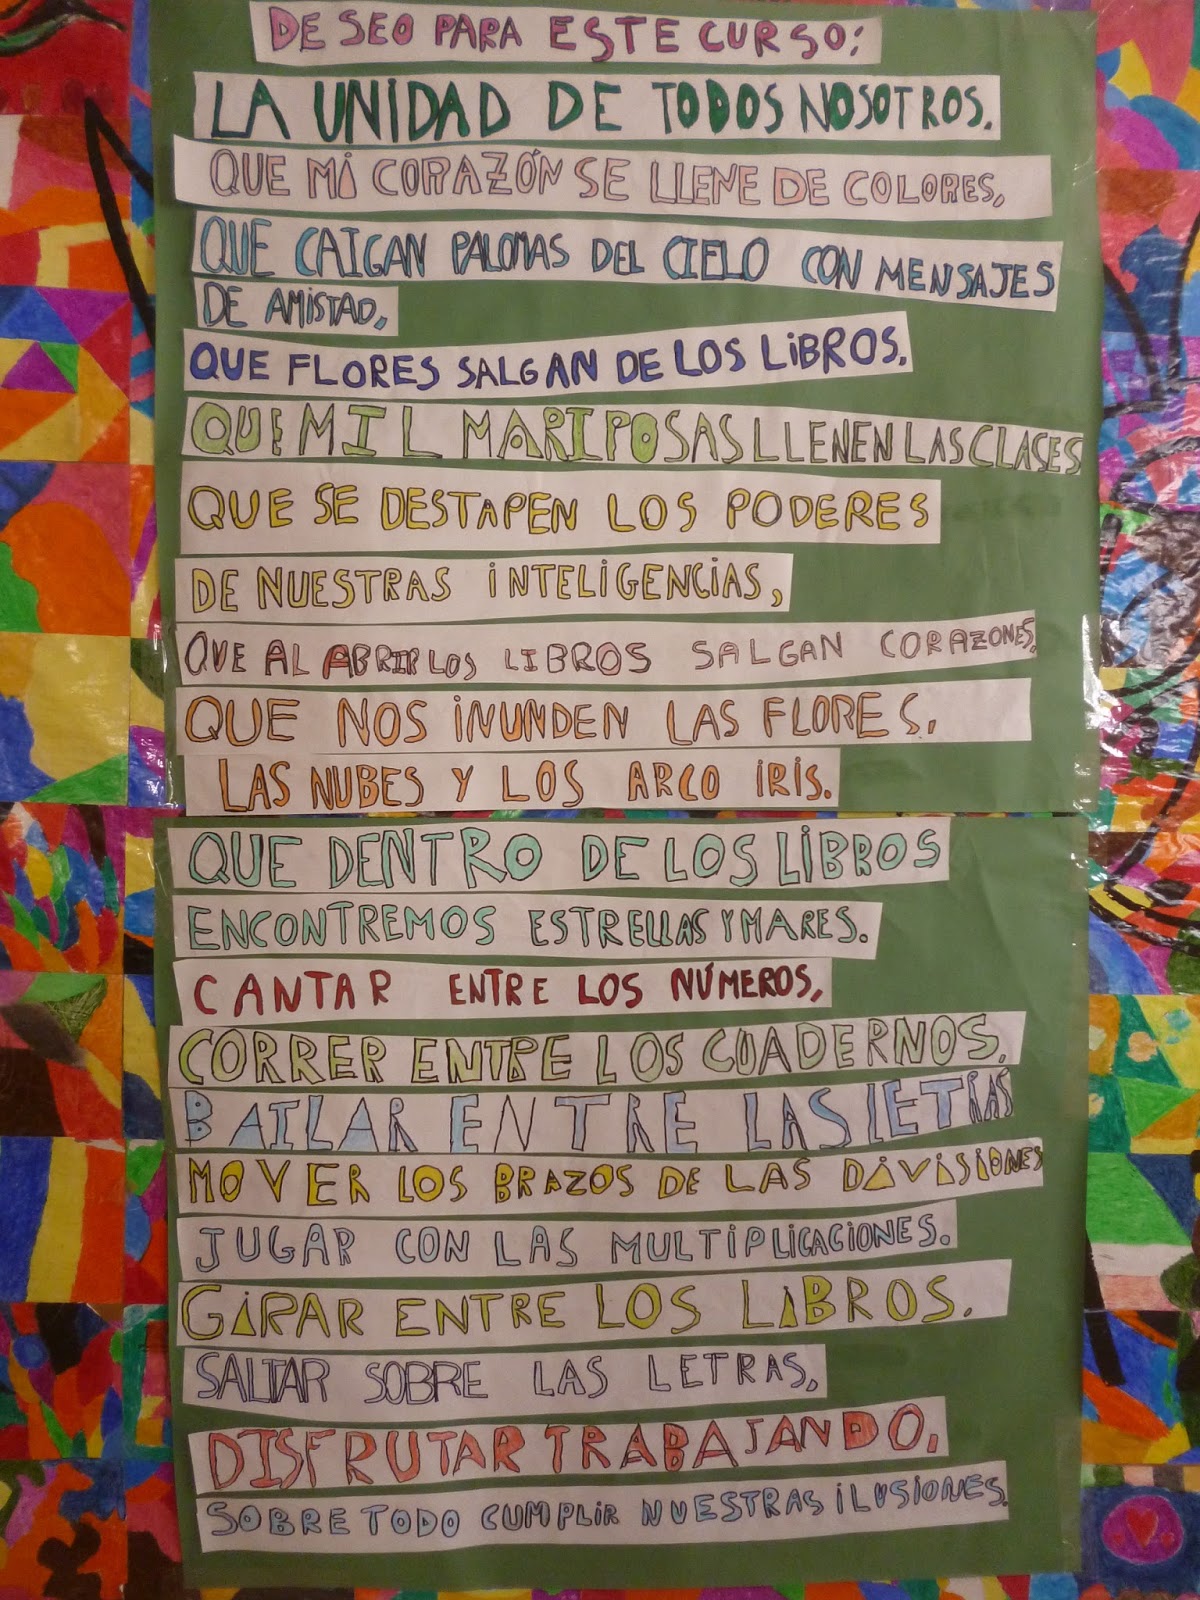 DESEO PARA ESTE CURSO:
LA UNIDAD DE TODOS NOSOTROS.
QUE MI CORAZÓN SE LLENE DE COLORES,
QUE CAIGAN PALOMAS DEL CIELO CON MENSAJES
DE AMISTAD,
QUE FLORES SALGAN DE LOS LIBROS.
QUE MIL MARIPOSAS LLENEN LAS CLASES
QUE SE DESTAPEN LOS PODERES
DE NUESTRAS INTELIGENCIAS,
QUE AL ABRIR LOS LIBROS SALGAN CORAZONES.
QUE NOS INUNDEN LAS FLORES.
LAS NUBES Y LOS ARCO IRIS.
QUE DENTRO DE LOS LIBROS
ENCONTREMOS ESTRELLAS Y MARES.
CANTAR ENTRE LOS NÚMEROS,
CORRER ENTRE LOS CUADERNOS.
BAILAR ENTRE LAS LETRAS
MOVER LOS BRAZOS DE LAS DIVISIONES
JUGAR CON LAS MULTIPLICACIONES.
GIRAR ENTRE LOS LIBROS.
SALTAR SOBRE LAS LETRAS,
DISFRUTAR TRABAJANDO,
SOBRE TODO CUMPLIR NUESTRAS ILUSIONES.